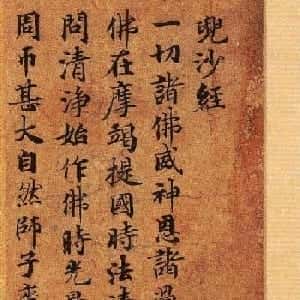 兜沙經
一切諸佛威神恩諸過
佛在摩竭提國時法清
問清淨始作佛時光景
周帀甚大自然師子